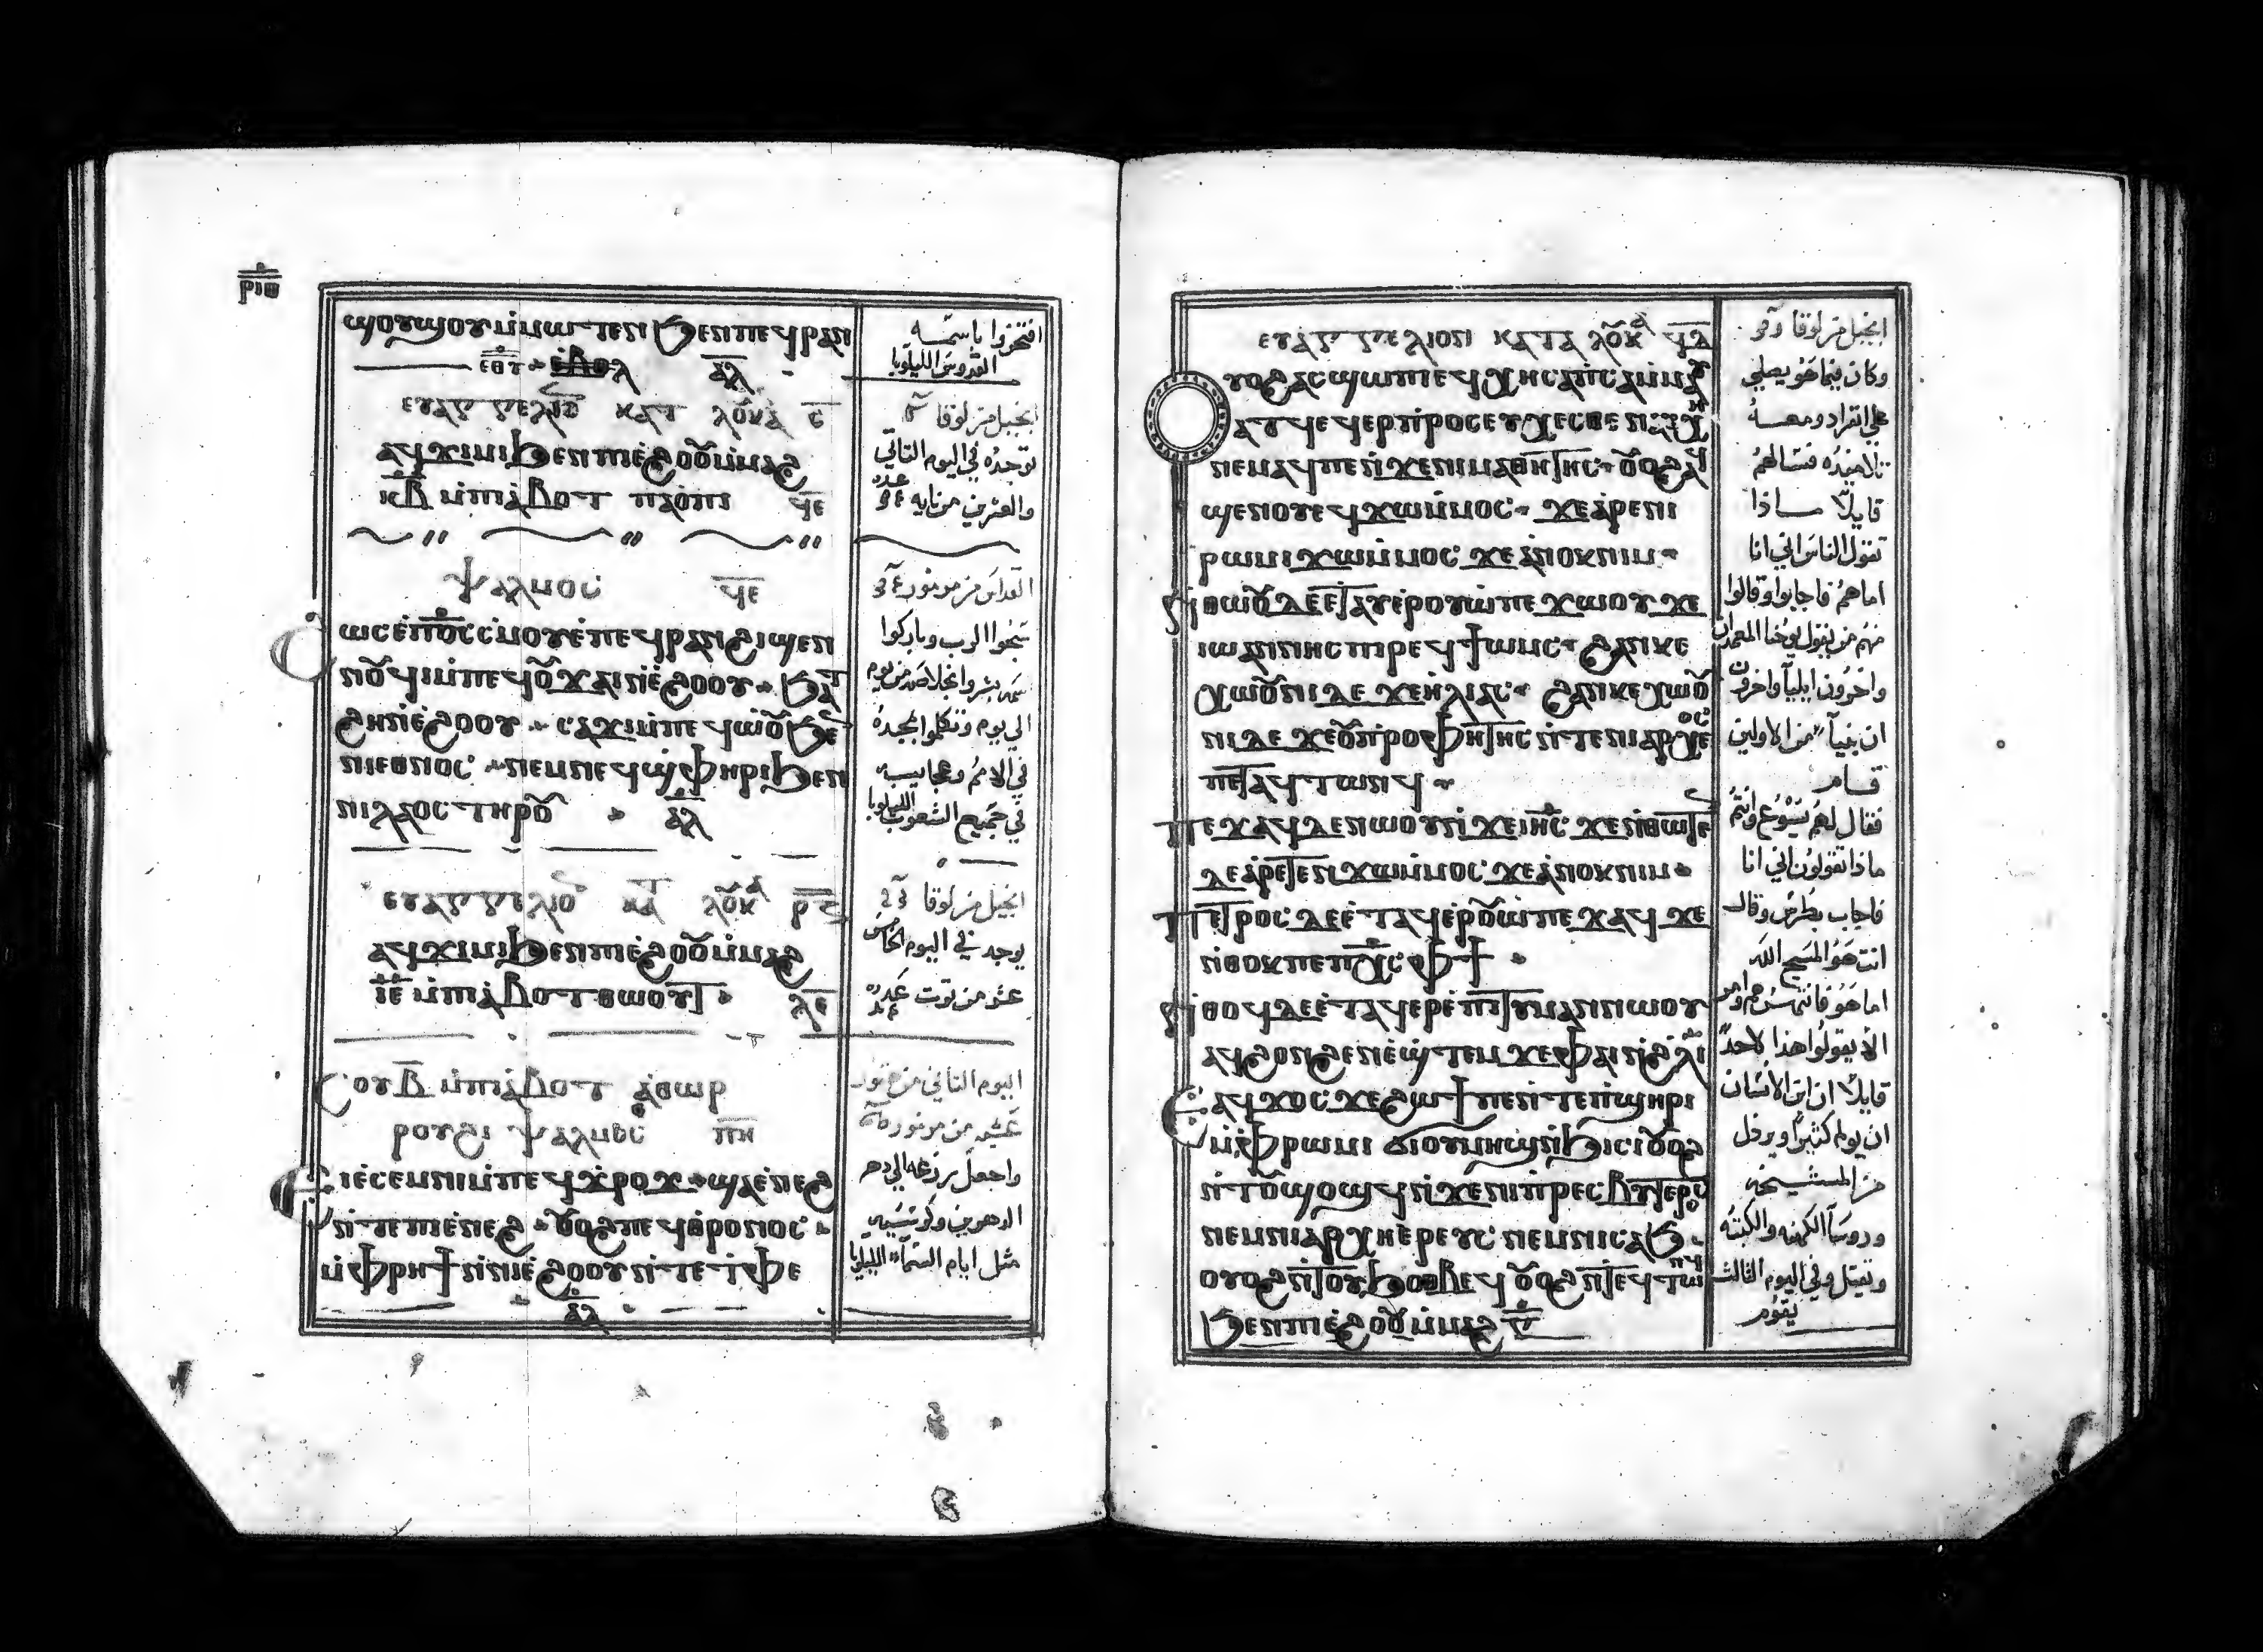 ⲣⲓⲱ
ϣⲟⲩϣⲟⲩ ⲙ̀ⲙⲱⲧⲉⲛ ϧⲉⲛ ⲡⲉϥⲣⲁⲛ
ⲉⲑⲩ ⲁ̅ⲗ̅
ⲉⲩⲁⲅⲅⲉⲗⲓⲟ ⲕⲁⲧ ⲗⲟⲩⲕⲁ
ⲁϥϫⲓⲙⲓ ϧⲉⲛ ⲡⲓⲉ̀ϩⲟⲟⲩ ⲙ̀ⲙⲁϩ
ⲕ̅ⲃ̅ ⲙ̀ⲡⲓⲁ̀ⲃⲟⲧ ⲡⲁⲟⲛⲓ ϥ̅ⲉ̅
ⲯⲁⲗⲙⲟⲥ ϥ̅ⲉ̅
ϩⲱⲥ ⲉ̀ⲡ̅ⲟ̅ⲥ̅ ⲥ̀ⲙⲟⲩ ⲉ̀ⲡⲉϥⲣⲁⲛ ϩⲓϣⲉⲛ
ⲛⲟⲩϥⲓ ⲙ̀ⲡⲉϥⲟⲩϫⲁⲓ ⲛ̀ⲉ̀ϩⲟⲟⲩ ϧⲁⲧ
ϩⲏ ⲛ̀ⲉ̀ϩⲟⲟⲩ ⲥⲁϫⲓ ⲙ̀ⲡⲉϥⲱ̀ⲟⲩ ϧⲉ
ⲛⲓⲉⲑⲛⲟⲥ ⲛⲉⲙ ⲛⲉϥϣ̀ⲫⲏⲣⲓ ϧⲉⲛ
ⲛⲓⲗⲁⲟⲥ ⲧⲏⲣⲟⲩ ⲁ̅ⲗ̅
ⲉⲩⲁⲅⲅⲉⲗⲓⲟ ⲕⲁⲧ ⲗⲟⲩⲕⲁ
ⲁϥϫⲓⲙⲓ ϧⲉⲛ ⲡⲓⲉ̀ϩⲟⲟⲩ ⲙ̀ⲙⲁϩ
ⲓ̅ⲉ̅ ⲙ̀ⲡⲓⲁ̀ⲃⲟⲧ ⲑⲱⲟⲩⲧ ⲗ̅ⲉ̅
ⲥⲟⲩ ⲃ̅ ⲙ̀ⲡⲓⲁ̀ⲃⲟⲧ ⲁ̀ⲑⲱⲣ
ⲣⲟⲩϩⲓ ⲯⲁⲗⲙⲟⲥ ⲡ̅ⲏ̅
ⲉⲓⲉ̀ⲥⲉⲙⲛⲓ ⲙ̀ⲡⲉϥϫ̀ⲣⲟϫ ϣⲁ ⲉ̀ⲛⲉϩ
ⲛ̀ⲧⲉ ⲡⲓⲉ̀ⲛⲉϩ ⲟⲩⲟϩ ⲡⲉϥⲑ̀ⲣⲟⲛⲟⲥ
ⲙ̀ⲫⲣⲏϯ ⲛ̀ⲛⲓⲉ̀ϩⲟⲟⲩ ⲛ̀ⲧⲉ ⲧ̀ⲫⲉ
ⲁ̅ⲗ̅
افتخروا باسمه
القدوس الليلويا
انجيل من لوقا
توجده في اليوم الثاني
والعشرين من باونه عدد
القداس مزمور
سبحوا الرب وباركوا
اسمه بشروا بخلاصه من يوم
الي يوم وتكلموا بمجده
في الامم وعجايبه
في جميع الشعوب الليلويا
انجيل من لوقا
يوجد في اليوم الخامس
عشر من توت عدد
اليوم الثاني من هتور
عشيه من مزمور
واجعل زرعه الي دهر
الدهرين وكرسيه
مثل ايام السماء الليلويا
ⲉⲩⲁⲅⲅⲉⲗⲓⲟⲛ ⲕⲁⲧⲁ ⲗⲟⲩⲕⲁ ϥ̅ⲁ̅
ⲟⲩⲟϩ ⲁⲥϣⲱⲡⲓ ⲉϥⲭⲏ ⲥⲁⲡ̀ⲥⲁ ⲙ̀ⲙⲁⲩ
ⲁⲧϥ ⲉϥⲉⲣⲡ̀ⲣⲟⲥⲉⲩⲭⲉⲥⲑⲉ ⲛⲁⲩⲭⲏ
ⲛⲉⲙⲁϥ ⲡⲉ ⲛ̀ϫⲉ ⲛⲓⲙⲁⲑⲏⲧⲏⲥ ⲟⲩⲟϩ ⲁϥ
ϣⲉⲛⲟⲩ ⲉϥϫⲱ ⲙ̀ⲙⲟⲥ ϫⲉ ⲁ̀ⲣⲉ ⲛⲓ
ⲣⲱⲙⲓ ϫⲱ ⲙ̀ⲙⲟⲥ ϫⲉ ⲁ̀ⲛⲟⲕ ⲛⲓⲙ
ⲛ̀ⲑⲱⲟⲩ ⲇⲉ ⲉ̀ⲧⲁⲩⲉ̀ⲣⲟⲩⲱ̀ ⲡⲉϫⲱⲟⲩ ϫⲉ
ⲓⲱⲁⲛⲛⲏⲥ ⲡⲓⲣⲉϥϯⲱⲙⲥ ϩⲁⲛⲕⲉ
ⲭⲱⲟⲩⲛⲓ ⲇⲉ ϫⲉ ⲏ̀ⲗⲓⲁⲥ ϩⲁⲛⲕⲉⲭⲱⲟⲩ
ⲛⲓ ⲇⲉ ϫⲉ ⲟⲩⲡ̀ⲣⲟⲫⲏⲧⲏⲥ ⲛ̀ⲧⲉ ⲛⲓⲁⲣⲭⲉⲟⲥ
ⲡⲉⲧⲁϥⲧⲱⲛϥ
ⲡⲉϫⲁϥ ⲇⲉ ⲛⲱⲟⲩ ⲛ̀ϫⲉ ⲓⲏ̅ⲥ̅ ϫⲉ ⲛ̀ⲑⲱⲧⲉ
ⲇⲉ ⲁ̀ⲣⲉⲧⲉⲛ ϫⲱ ⲙ̀ⲙⲟⲥ ϫⲉ ⲁ̀ⲛⲟⲕ ⲛⲓⲙ
ⲡⲉⲧⲣⲟⲥ ⲇⲉ ⲉ̀ⲧⲁϥⲉ̀ⲣⲟⲩⲱ̀ ⲡⲉϫⲁϥ ϫⲉ
ⲛ̀ⲑⲟⲕ ⲡⲉ ⲡⲭ̅ⲥ̅ ⲫϯ
ⲛ̀ⲑⲟϥ ⲇⲉ ⲉ̀ⲧⲁϥⲉⲣⲉ̀ⲡⲓⲧⲓⲙⲁⲛ ⲛⲱⲟⲩ
ⲁϥϩⲟⲛϩⲉⲛ ⲉ̀ϣ̀ⲧⲉⲙ ϫⲉ ⲫⲁⲓ ⲛ̀ϩ̀ⲗⲓ
ⲉⲁϥϫⲟⲥ ϫⲉ ϩⲱϯ ⲡⲉ ⲛ̀ⲧⲉ ⲡ̀ϣⲏⲣⲓ
ⲙ̀ⲫⲣⲱⲙⲓ ϭⲓ ⲟⲩⲙⲏϣ ⲛ̀ϧⲓⲥⲓ ⲟⲩⲟϩ
ⲛ̀ⲧⲟⲩϣⲟϣϥ ⲛ̀ϫⲉ ⲛⲓⲡ̀ⲣⲉⲥⲃⲩⲧⲉⲣⲟⲥ
ⲛⲉⲙ ⲛⲓⲁⲣⲭⲏⲉ̀ⲣⲉⲩⲥ ⲛⲉⲙ ⲛⲓⲥⲁϧ
ⲟⲩⲟϩ ⲛ̀ⲧⲟⲩϧⲟⲑⲃⲉϥ ⲟⲩⲟϩ ⲛ̀ⲧⲉϥⲧⲱⲛϥ
ϧⲉⲛ ⲡⲓⲉ̀ϩⲟⲟⲩ ⲙ̀ⲙⲁϩ ⲅ̅
انجيل من لوقا
وكان فيما هو يصلي
علي انفراد ومعه
تلاميذه فسالهم
قايلا ماذا
تقول الناس اني انا
اما هم فاجابوا وقالوا
منهم من يقول يوحنا المعمدان
واخرون ايليا واخرون
ان نبيا من الاولين
قام
فقال لهم يسوع وانتم
ماذا تقولون اني انا
فاجاب بطرس وقال
انت هو المسيح الله
اما هو فانتهرهم وامر
الا يقولوا هذا لاحد
قايلا ان ابن الانسان
ان يولم كثيرا ويرذل
من المشيخه
وروسا الكهنه والكتبه
ويقتل وفي اليوم الثالث
يقوم